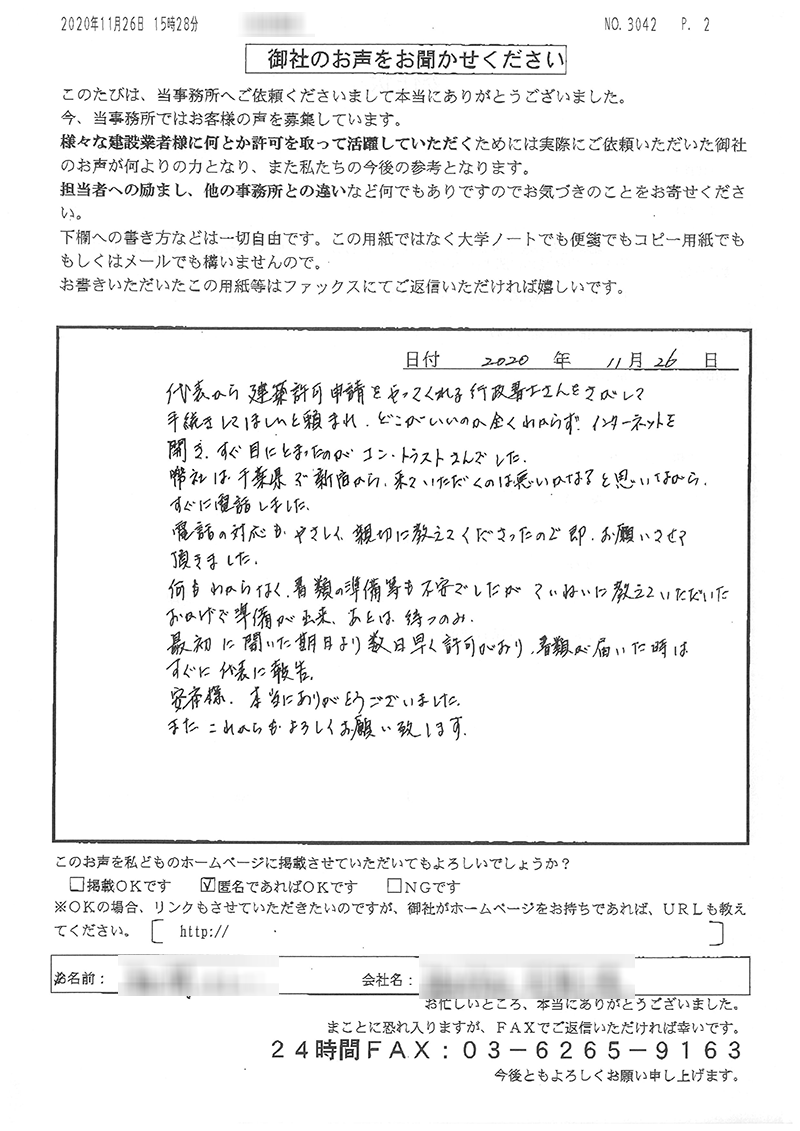 2020年11月26日 15時28分
NO. 3042 P. 2
御社のお声をお聞かせください
このたびは、当事務所へご依頼くださいまして本当にありがとうございました。
今、当事務所ではお客様の声を募集しています。
様々な建設業者様に何とか許可を取って活躍していただくためには実際にご依頼いただいた御社
のお声が何よりの力となり、また私たちの今後の参考となります。
担当者への励まし、他の事務所との違いなど何でもありですのでお気づきのことをお寄せくださ
い。
下欄への書き方などは一切自由です。この用紙ではなく大学ノートでも便箋でもコピー用紙でも
もしくはメールでも構いませんので。
お書きいただいたこの用紙等はファックスにてご返信いただければ嬉しいです。
日付 2020 年 11月 26 日
代表から 建築許可申請をやってくれる行政書士さんをさがして
手続きしてほしいと頼まれ、どこがいいのか全くわからず インターネットを
開き、すぐ目にとまったのが コン・トラストさんでした。
弊社は千葉県で新宿から、来ていただくのは悪いかなぁと思いながら、
すぐに電話しました。
電話の対応も やさしく、親切に教えてくださったので 即、お願いさせて
頂きました。
何もわからなく、書類の準備等も不安でしたが ていねいに教えていただいた
おかげで準備が出来、あとは 待つのみ。
最初に聞いた期日より数日早く許可がおり、書類が届いた時は
すぐに代表に報告。
安斉様、本当にありがとうございました。
また これからもよろしくお願い致します。
このお声を私どものホームページに掲載させていただいてもよろしいでしょうか？
□掲載OKです ☑匿名であればOKです □NGです
※OKの場合、リンクもさせていただきたいのですが、御社がホームページをお持ちであれば、URLも教え
てください。[ http:// ]
お名前： 会社名：
お忙しいところ、本当にありがとうございました。
まことに恐れ入りますが、FAXでご返信いただければ幸いです。
24時間FAX：03－6265－9163
今後ともよろしくお願い申し上げます。